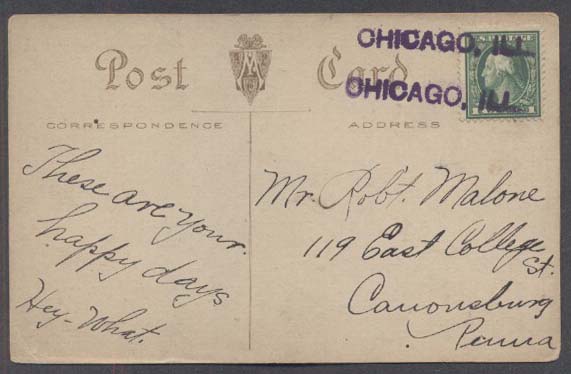 Post Card
CHICAGO, ILL.
CHICAGO, ILL.
CORRESPONDENCE
ADDRESS
These are your
happy days
Hey-What.
Mr. Robt. Malone
119 East College
St.
Canonsburg
Penna